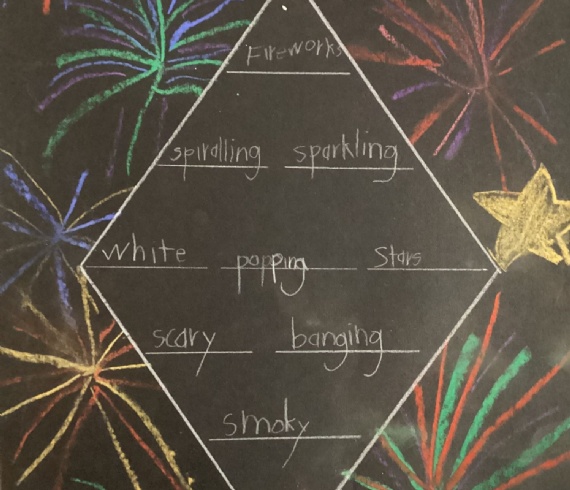 Fireworks
spiralling sparkling
white popping Stars
scary banging
smoky